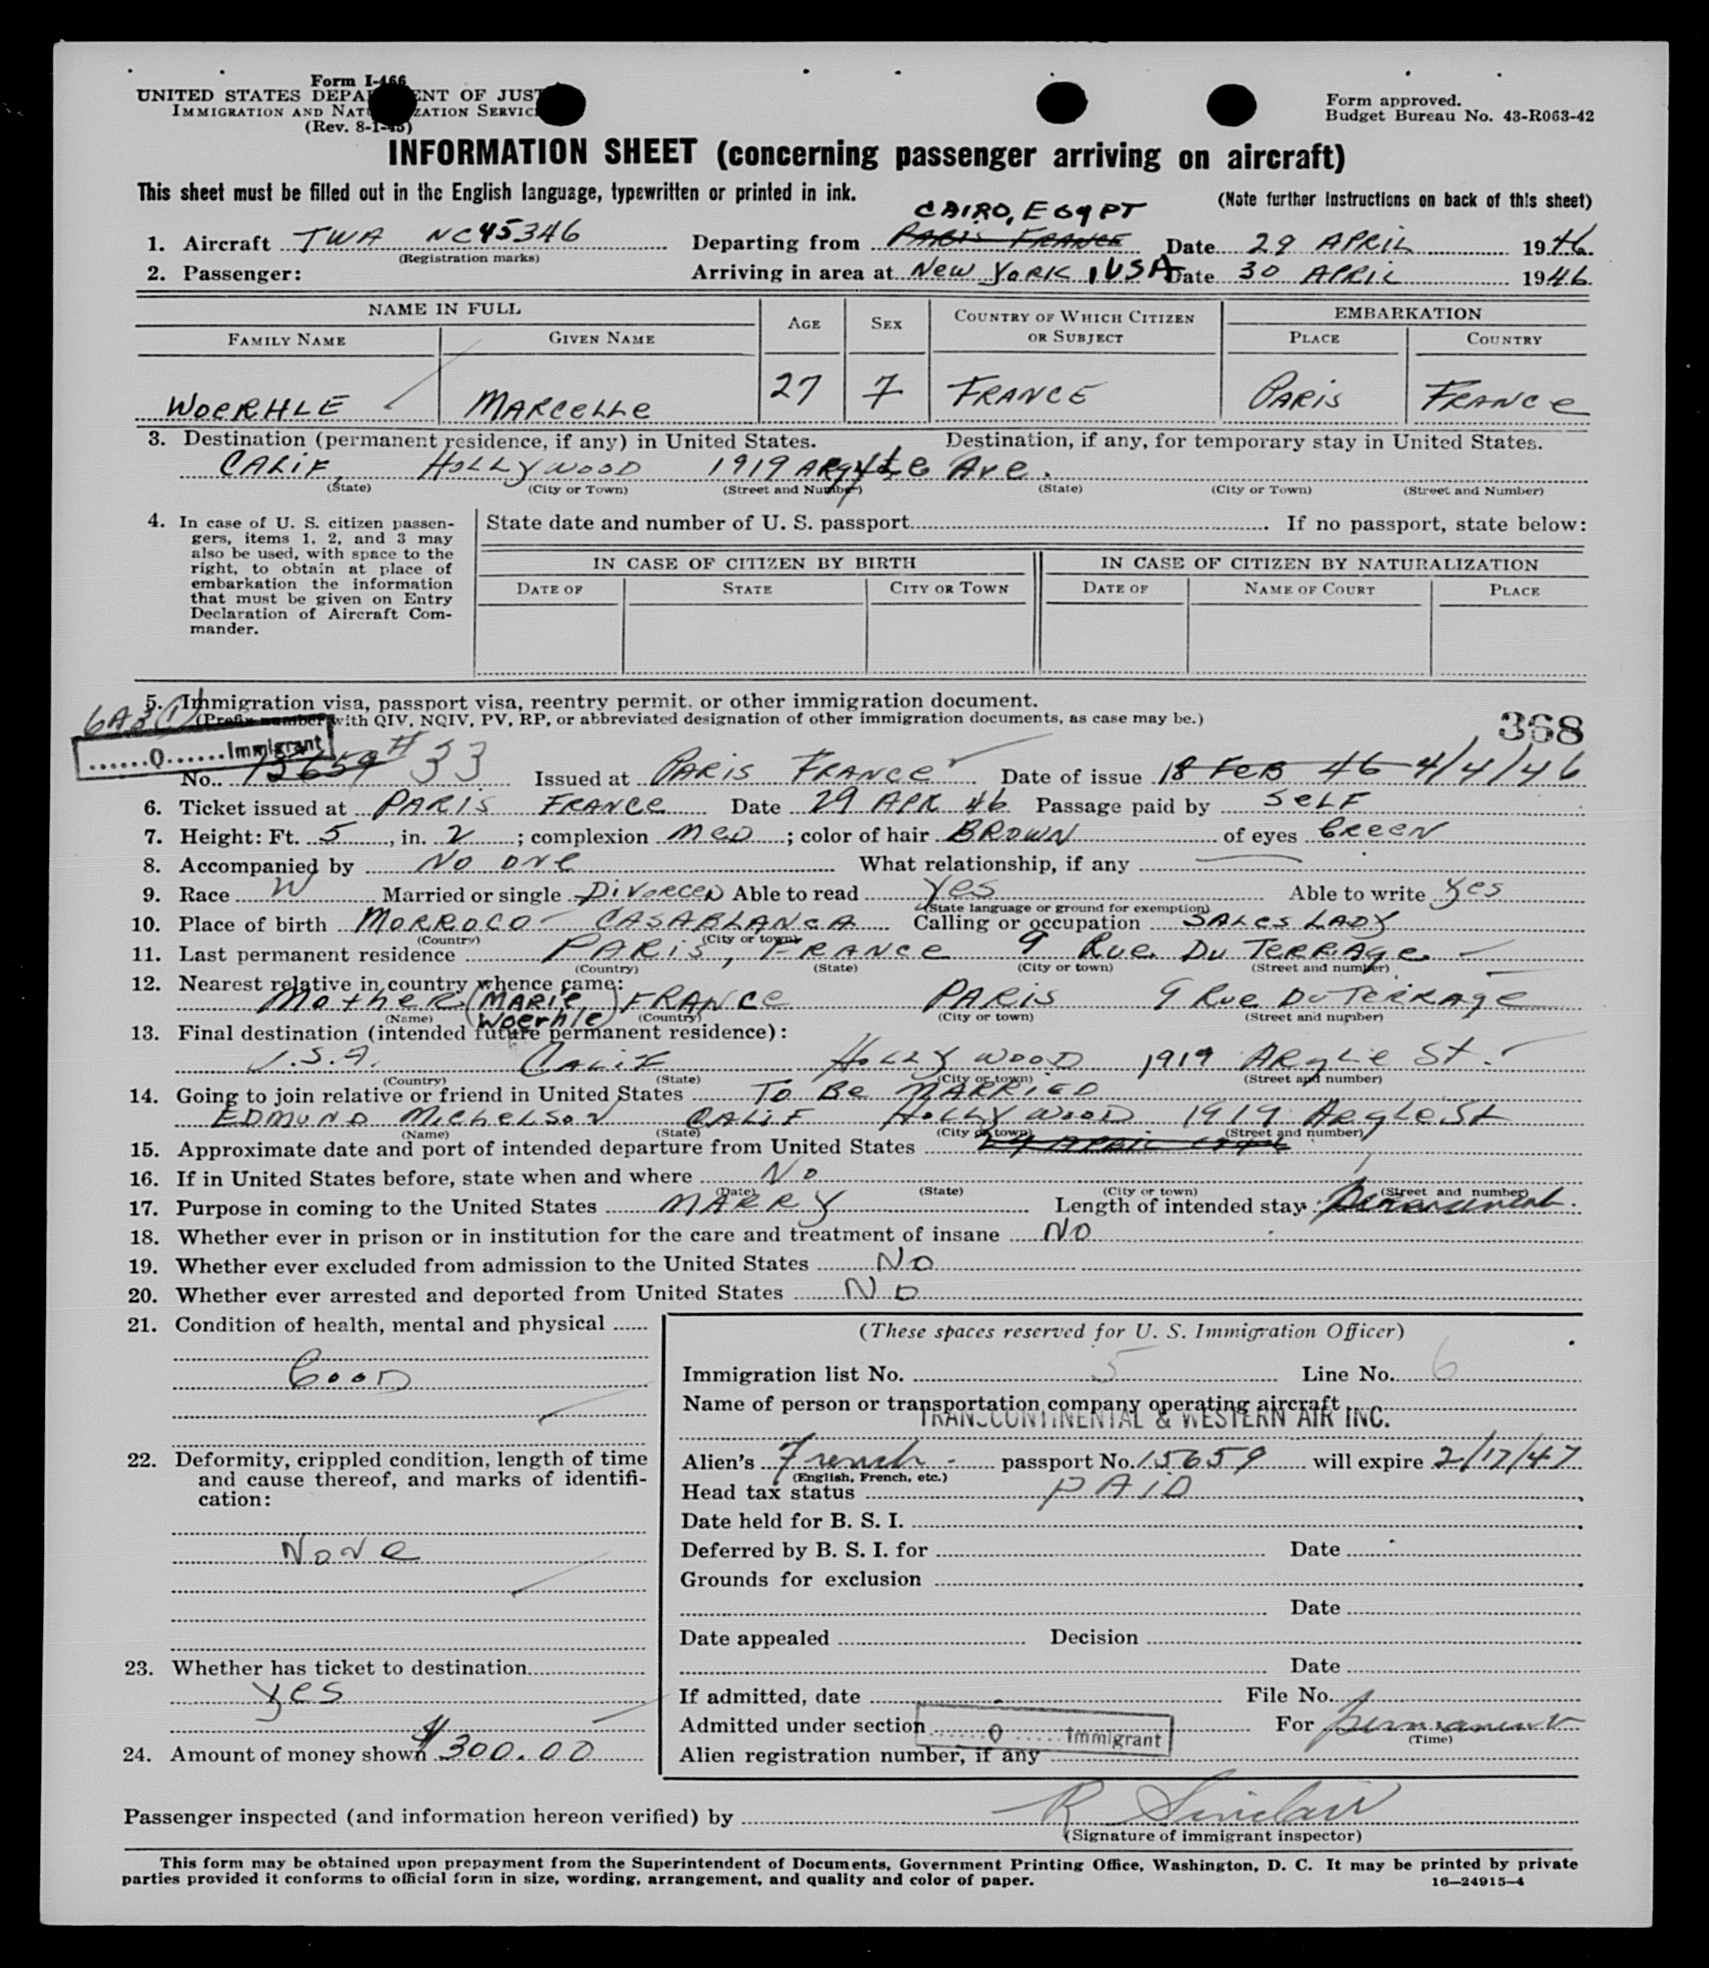 Form I-466
UNITED STATES DEPARTMENT OF JUSTICE
IMMIGRATION AND NATURALIZATION SERVICE
(Rev. 8-1-45)
Form approved.
Budget Bureau No. 43-R063-42
INFORMATION SHEET (concerning passenger arriving on aircraft)
This sheet must be filled out in the English language, typewritten or printed in ink.
(Note further instructions on back of this sheet)
CAIRO, EGYPT
1. Aircraft TWA NC45346 Departing from PARIS FRANCE Date 29 APRIL 1946.
(Registration marks)
2. Passenger: Arriving in area at NEW YORK, USA Date 30 APRIL 1946.
NAME IN FULL AGE SEX COUNTRY OF WHICH CITIZEN OR SUBJECT EMBARKATION
FAMILY NAME GIVEN NAME PLACE COUNTRY
WOERHLE MARCELLE 27 F FRANCE PARIS FRANCE
3. Destination (permanent residence, if any) in United States. Destination, if any, for temporary stay in United States.
CALIF, HOLLYWOOD 1919 ARGYLE AVE.
(State) (City or Town) (Street and Number) (State) (City or Town) (Street and Number)
4. In case of U. S. citizen passen-
gers, items 1, 2, and 3 may
also be used, with space to the
right, to obtain at place of
embarkation the information
that must be given on Entry
Declaration of Aircraft Com-
mander.
State date and number of U. S. passport If no passport, state below:
IN CASE OF CITIZEN BY BIRTH IN CASE OF CITIZEN BY NATURALIZATION
DATE OF STATE CITY OR TOWN DATE OF NAME OF COURT PLACE
5. Immigration visa, passport visa, reentry permit, or other immigration document.
6A3(1) (Prefix number with QIV, NQIV, PV, RP, or abbreviated designation of other immigration documents, as case may be.)
368
Q Immigrant
No. 15659 #33 Issued at PARIS FRANCE Date of issue 18 FEB 46 4/4/46
6. Ticket issued at PARIS FRANCE Date 29 APR 46 Passage paid by SELF
7. Height: Ft. 5, in. 2; complexion MED; color of hair BROWN of eyes GREEN
8. Accompanied by NO ONE What relationship, if any
9. Race W Married or single DIVORCED Able to read YES Able to write YES
(State language or ground for exemption)
10. Place of birth MORROCO - CASABLANCA Calling or occupation SALES LADY
(Country) (City or town)
11. Last permanent residence PARIS, FRANCE 9 RUE DU TERRAGE
(Country) (State) (City or town) (Street and number)
12. Nearest relative in country whence came:
MOTHER (MARIE WOERHLE) FRANCE PARIS 9 RUE DU TERRAGE
(Name) (Country) (City or town) (Street and number)
13. Final destination (intended future permanent residence):
U.S.A. CALIF HOLLYWOOD 1919 ARGLIE ST.
(Country) (State) (City or town) (Street and number)
14. Going to join relative or friend in United States TO BE MARRIED
EDMUND MICHELSON CALIF HOLLYWOOD 1919 ARGLE ST
(Name) (State) (City or town) (Street and number)
15. Approximate date and port of intended departure from United States
16. If in United States before, state when and where NO
(Date) (State) (City or town) (Street and number)
17. Purpose in coming to the United States MARRY Length of intended stay Permanent.
18. Whether ever in prison or in institution for the care and treatment of insane NO
19. Whether ever excluded from admission to the United States NO
20. Whether ever arrested and deported from United States NO
21. Condition of health, mental and physical
GOOD
22. Deformity, crippled condition, length of time
and cause thereof, and marks of identifi-
cation:
NONE
23. Whether has ticket to destination
YES
24. Amount of money shown $300.00
(These spaces reserved for U. S. Immigration Officer)
Immigration list No. 5 Line No. 6
Name of person or transportation company operating aircraft
TRANSCONTINENTAL & WESTERN AIR INC.
Alien's French passport No. 15659 will expire 2/17/47
(English, French, etc.)
Head tax status PAID
Date held for B. S. I.
Deferred by B. S. I. for Date
Grounds for exclusion
Date
Date appealed Decision
Date
If admitted, date File No.
Admitted under section Q Immigrant For permanent
(Time)
Alien registration number, if any
Passenger inspected (and information hereon verified) by R Sinclair
(Signature of immigrant inspector)
This form may be obtained upon prepayment from the Superintendent of Documents, Government Printing Office, Washington, D. C. It may be printed by private
parties provided it conforms to official form in size, wording, arrangement, and quality and color of paper.
16—24915-4